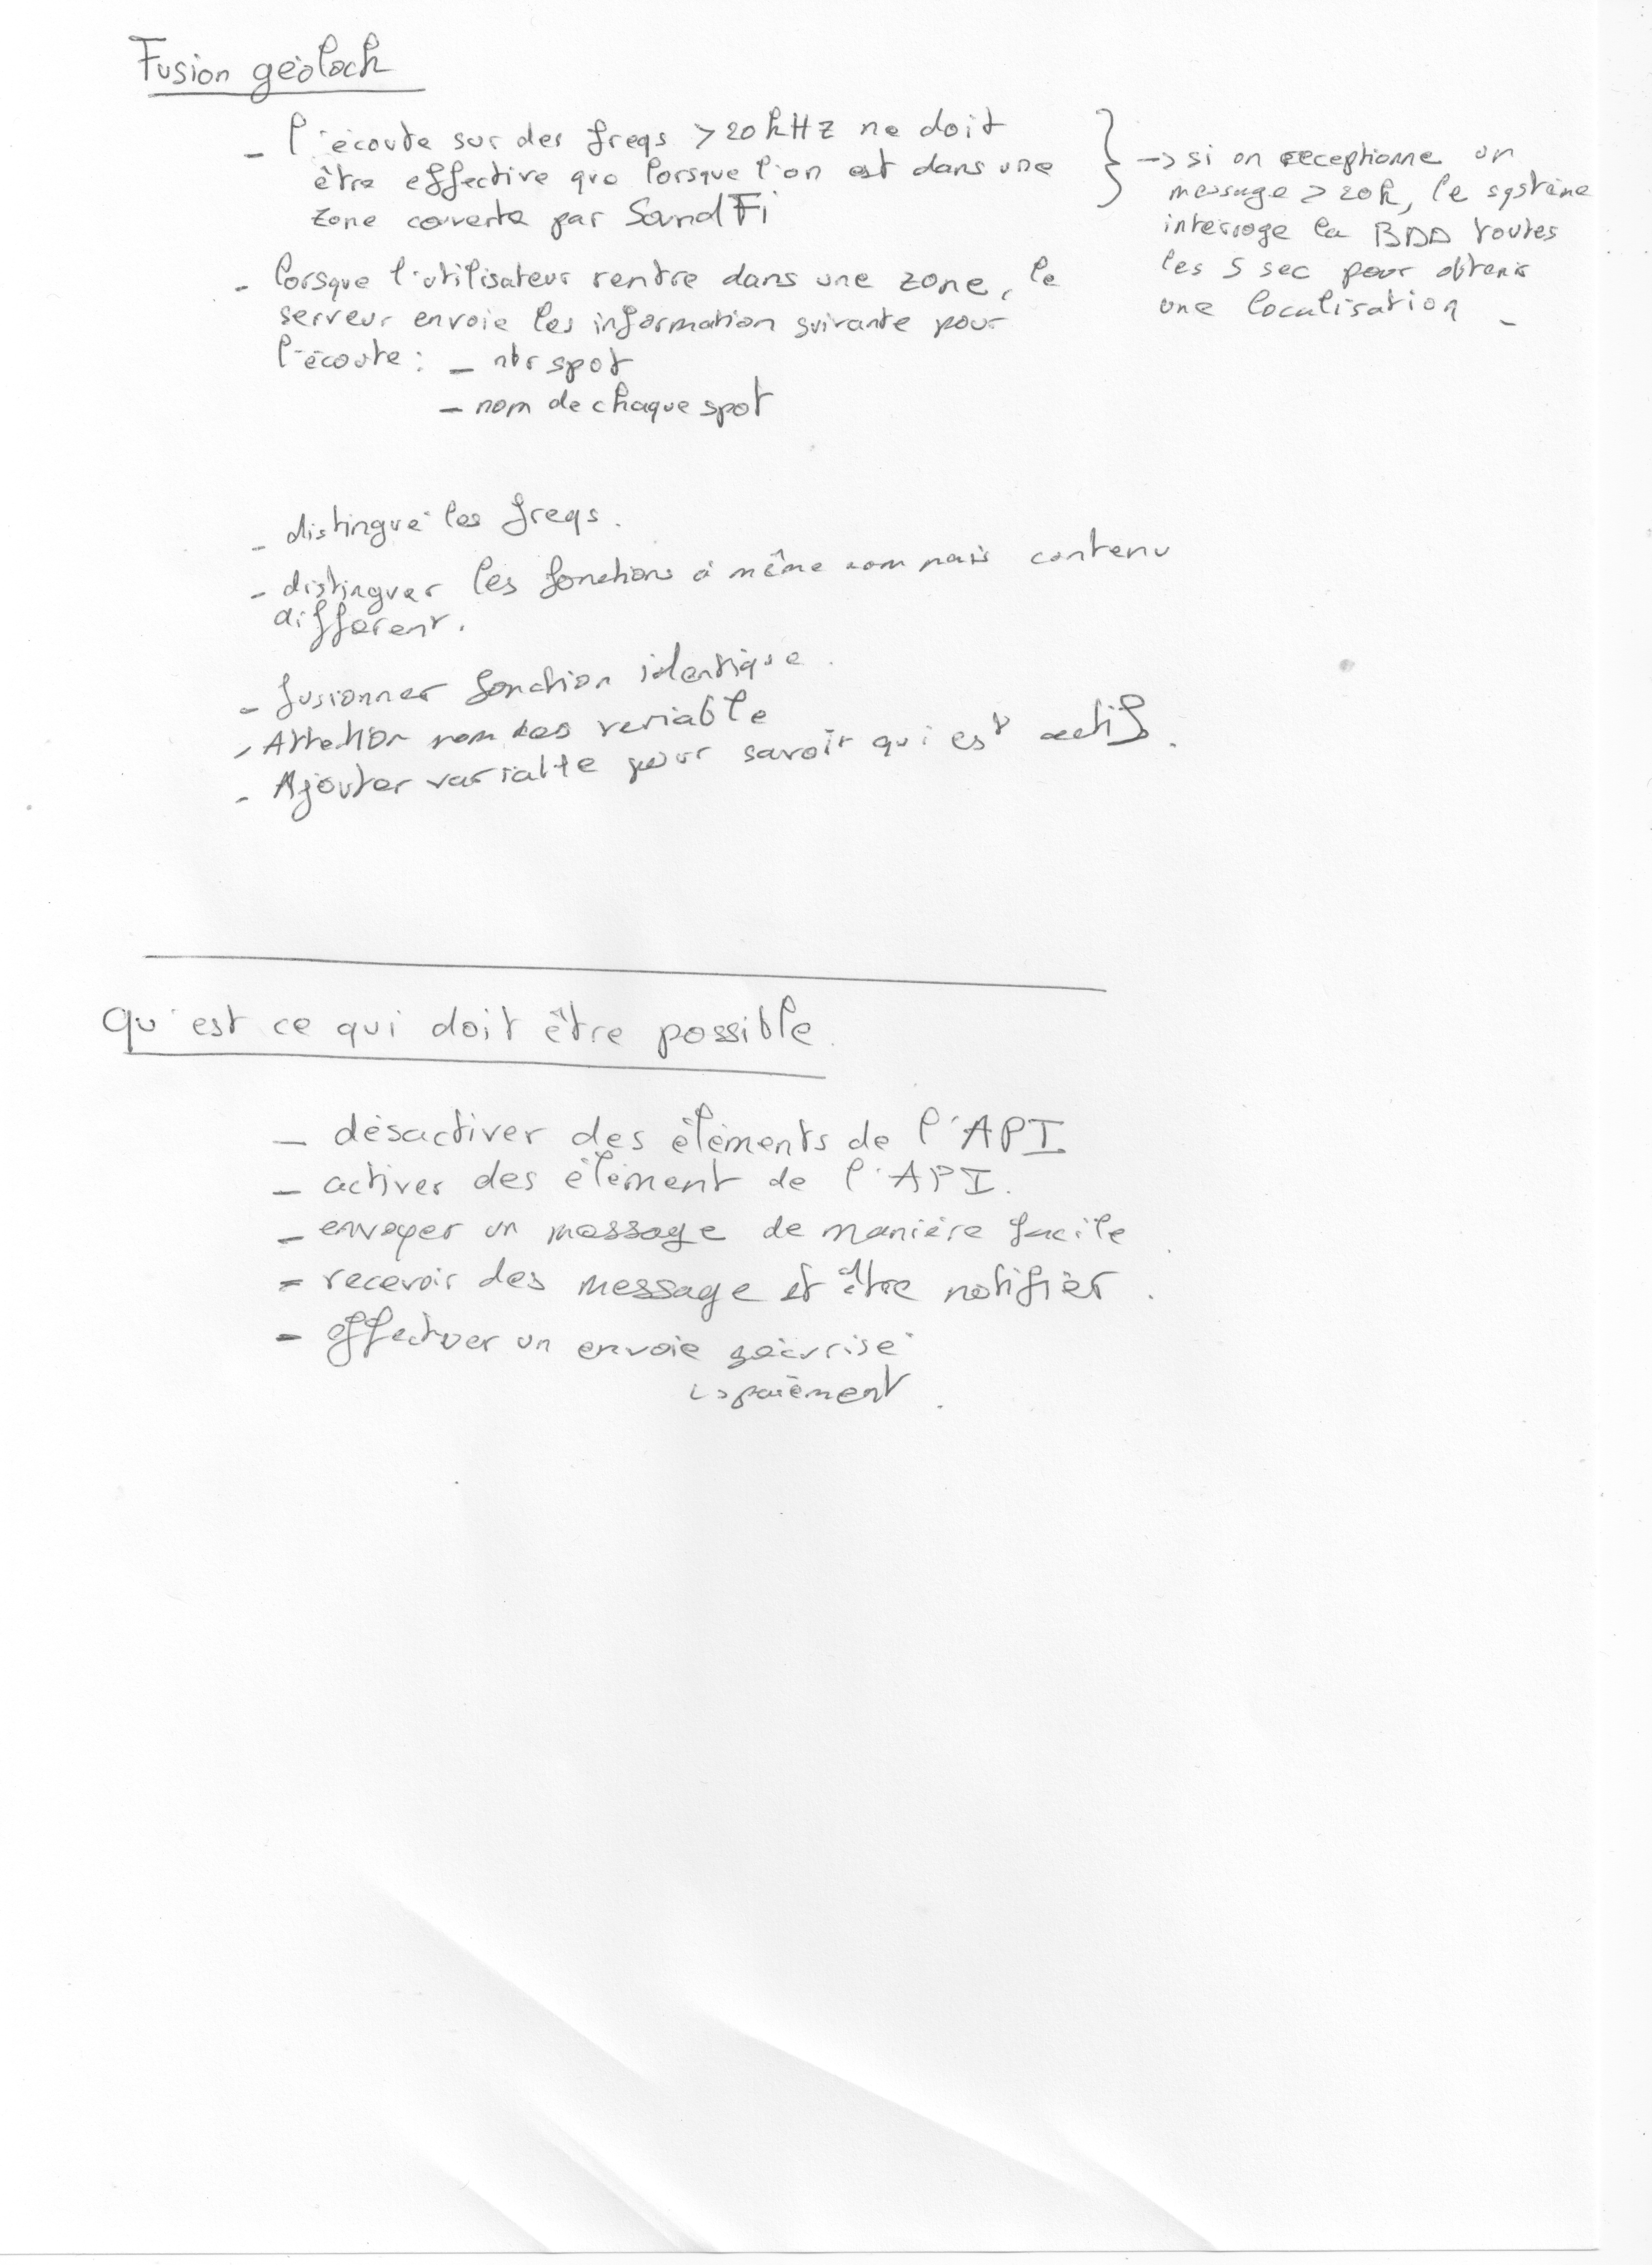 Fusion géolock
- l'écoute sur des freqs > 20 kHz ne doit
être effective que lorsque l'on est dans une
zone couverte par SoundFi
} -> si on receptionne un
message > 20k, le système
interroge la BDD toutes
les 5 sec pour obtenir
une localisation
- lorsque l'utilisateur rentre dans une zone, le
serveur envoie les information suivante pour
l'écoute : - nbr spot
- nom de chaque spot
- distingué les freqs.
- distinguer les fonctions à même nom mais contenu
différent.
- fusionner fonction identique.
- Attention nom des variable
- Ajouter variable pour savoir qui est actif.
Qu'est ce qui doit être possible.
- désactiver des éléments de l'API
- activer des élément de l'API.
- envoyer un message de manière facile.
- recevoir des message et être notifier.
- effectuer un envoie sécurisé
↳ paiement.